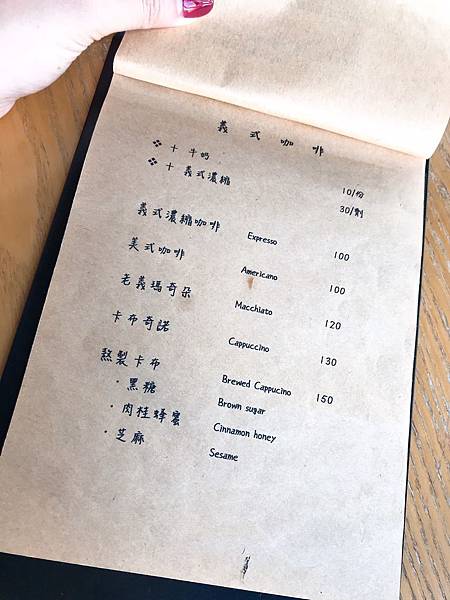 義式咖啡
❖ + 牛奶 10/份
❖ + 義式濃縮 30/劑
義式濃縮咖啡 Expresso 100
美式咖啡 Americano 100
老義瑪奇朵 Macchiato 120
卡布奇諾 Cappuccino 130
熬製卡布 Brewed Cappucino 150
· 黑糖 Brown sugar
· 肉桂蜂蜜 Cinnamon honey
· 芝麻 Sesame